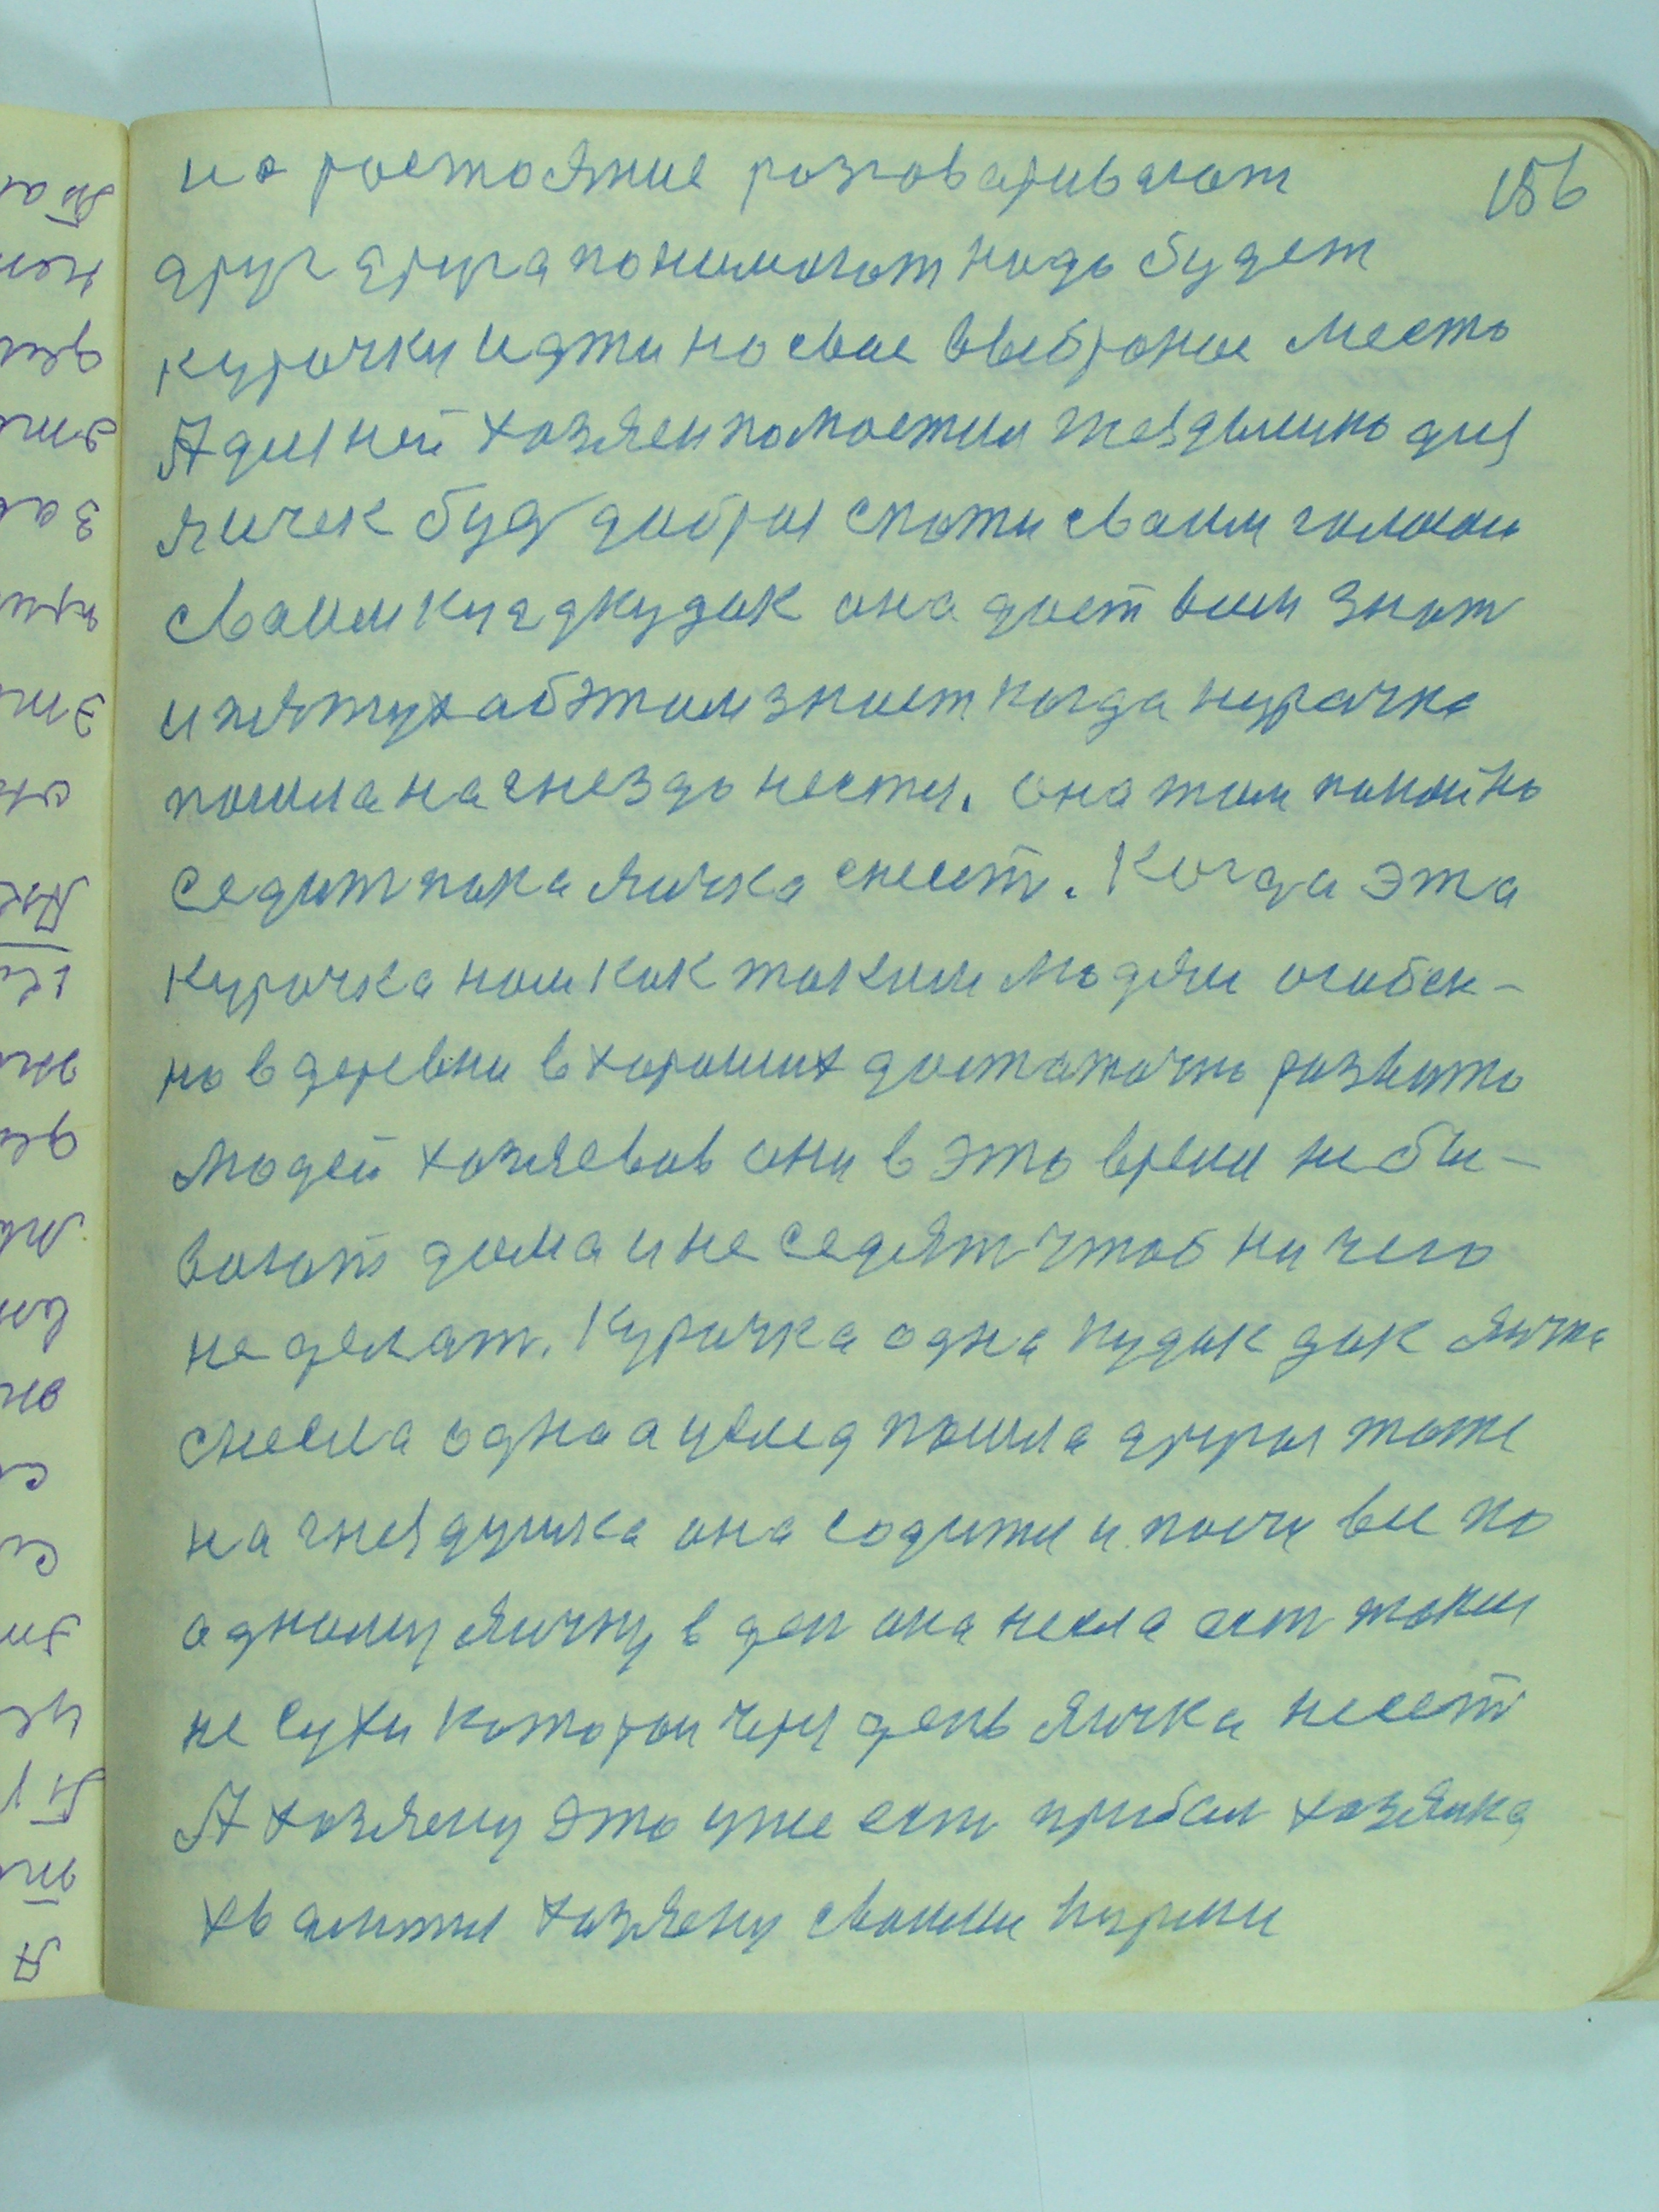 на ростояние разговаривают 156
друг друга понимают надо будет
курочки идти на свое выброное место
А для ней хозяен помостил гнездышко для
яичек буд добра спати сваим
сваим кудкудак она дает вам знат
и пятух об этом знает когда курочка
пошла на гнездо нести. она там покойно
седит пока яичка снесет. Когда эта
курочка нам как таким людям особен-
но в деревни в хороших достаточно развито
людей хозяевов они в это время не бы-
вают дома и не седят чтоб ни чего
не делат. Курочка одна кудак дак яичка
снесла одна а услед пошла другая тоже
на гнездушка она содити и почи все по
одному яичку в ден она несла ест такии
не сухи которои через день яичка несет
А хозяену это уже ест прибал хозяика
хвалити хозяену своими курами